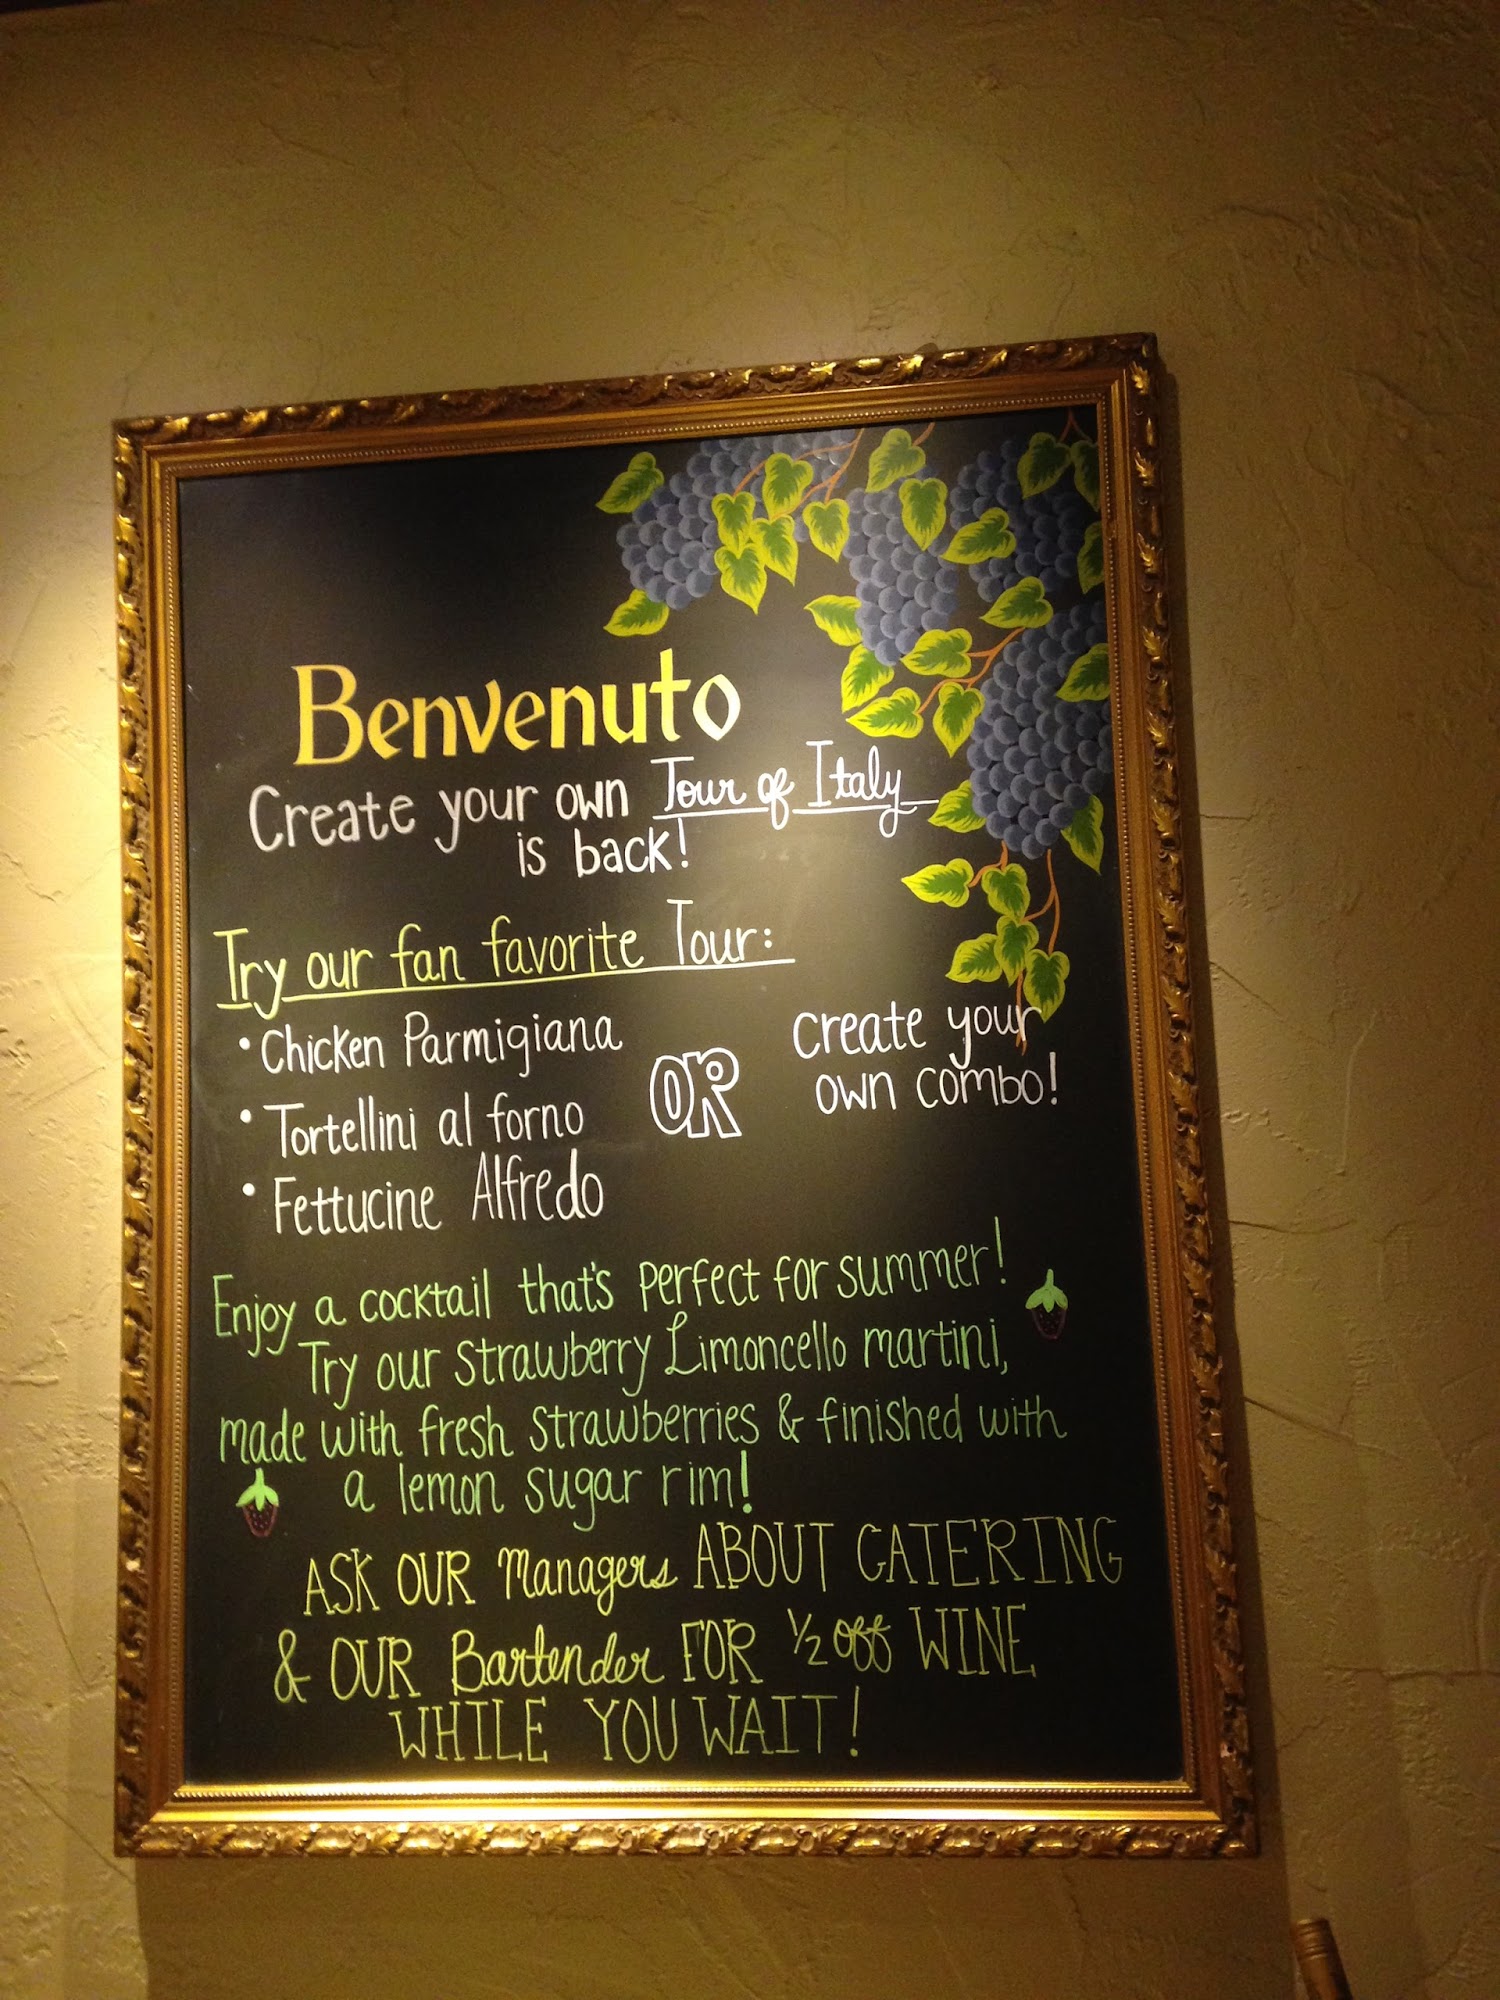 Benvenuto
Create your own Tour of Italy
is back!
Try our fan favorite Tour:
• Chicken Parmigiana
• Tortellini al forno
• Fettucine Alfredo
OR
create your
own combo!
Enjoy a cocktail that's perfect for summer!
Try our Strawberry Limoncello martini,
made with fresh strawberries & finished with
a lemon sugar rim!
ASK OUR Managers ABOUT CATERING
& OUR Bartender FOR ½ off WINE
WHILE YOU WAIT!